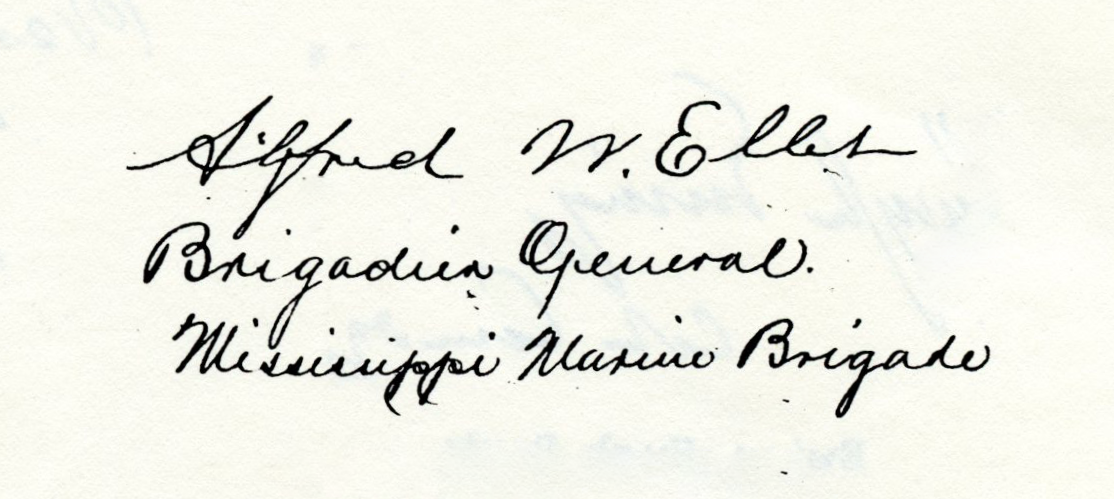 Alfred W. Ellet
Brigadier General.
Mississippi Marine Brigade